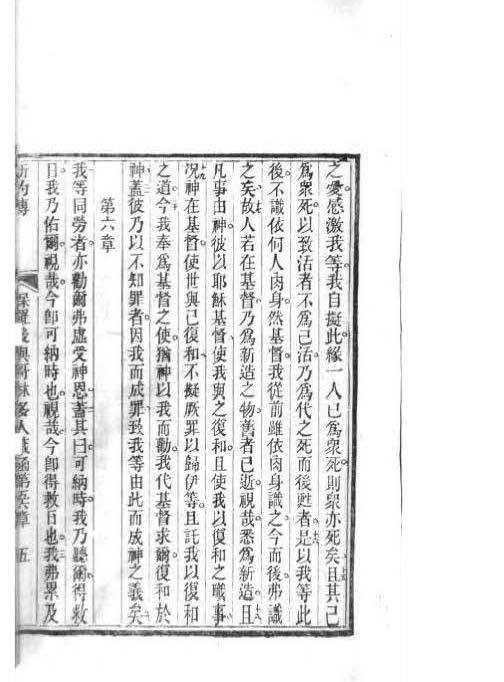 之愛感激我等我自擬此緣一人已爲衆死則衆亦死矣且其已
爲衆死以致活者不爲己活乃爲代之死而後甦者是以我等此
後不識依何人肉身然基督我從前雖依肉身識之今而後弗識
之矣故人若在基督乃爲新造之物舊者已逝視哉悉爲新造且
凡事由神彼以耶穌基督使我與之復和且使我以復和之職事
况神在基督使世與己復和不擬厥罪以歸伊等且託我以復和
之道今我奉爲基督之使猶神以我而勸我代基督求爾復和於
神蓋彼乃以不知罪者因我而成罪致我等由此而成神之義矣
第六章
我等同勞者亦勸爾弗虛受神恩蓋其曰可納時我乃聽爾得救
日我乃佑爾視哉今卽可納時也視哉今卽得救日也我弗累及
保羅後與哥林多人 五